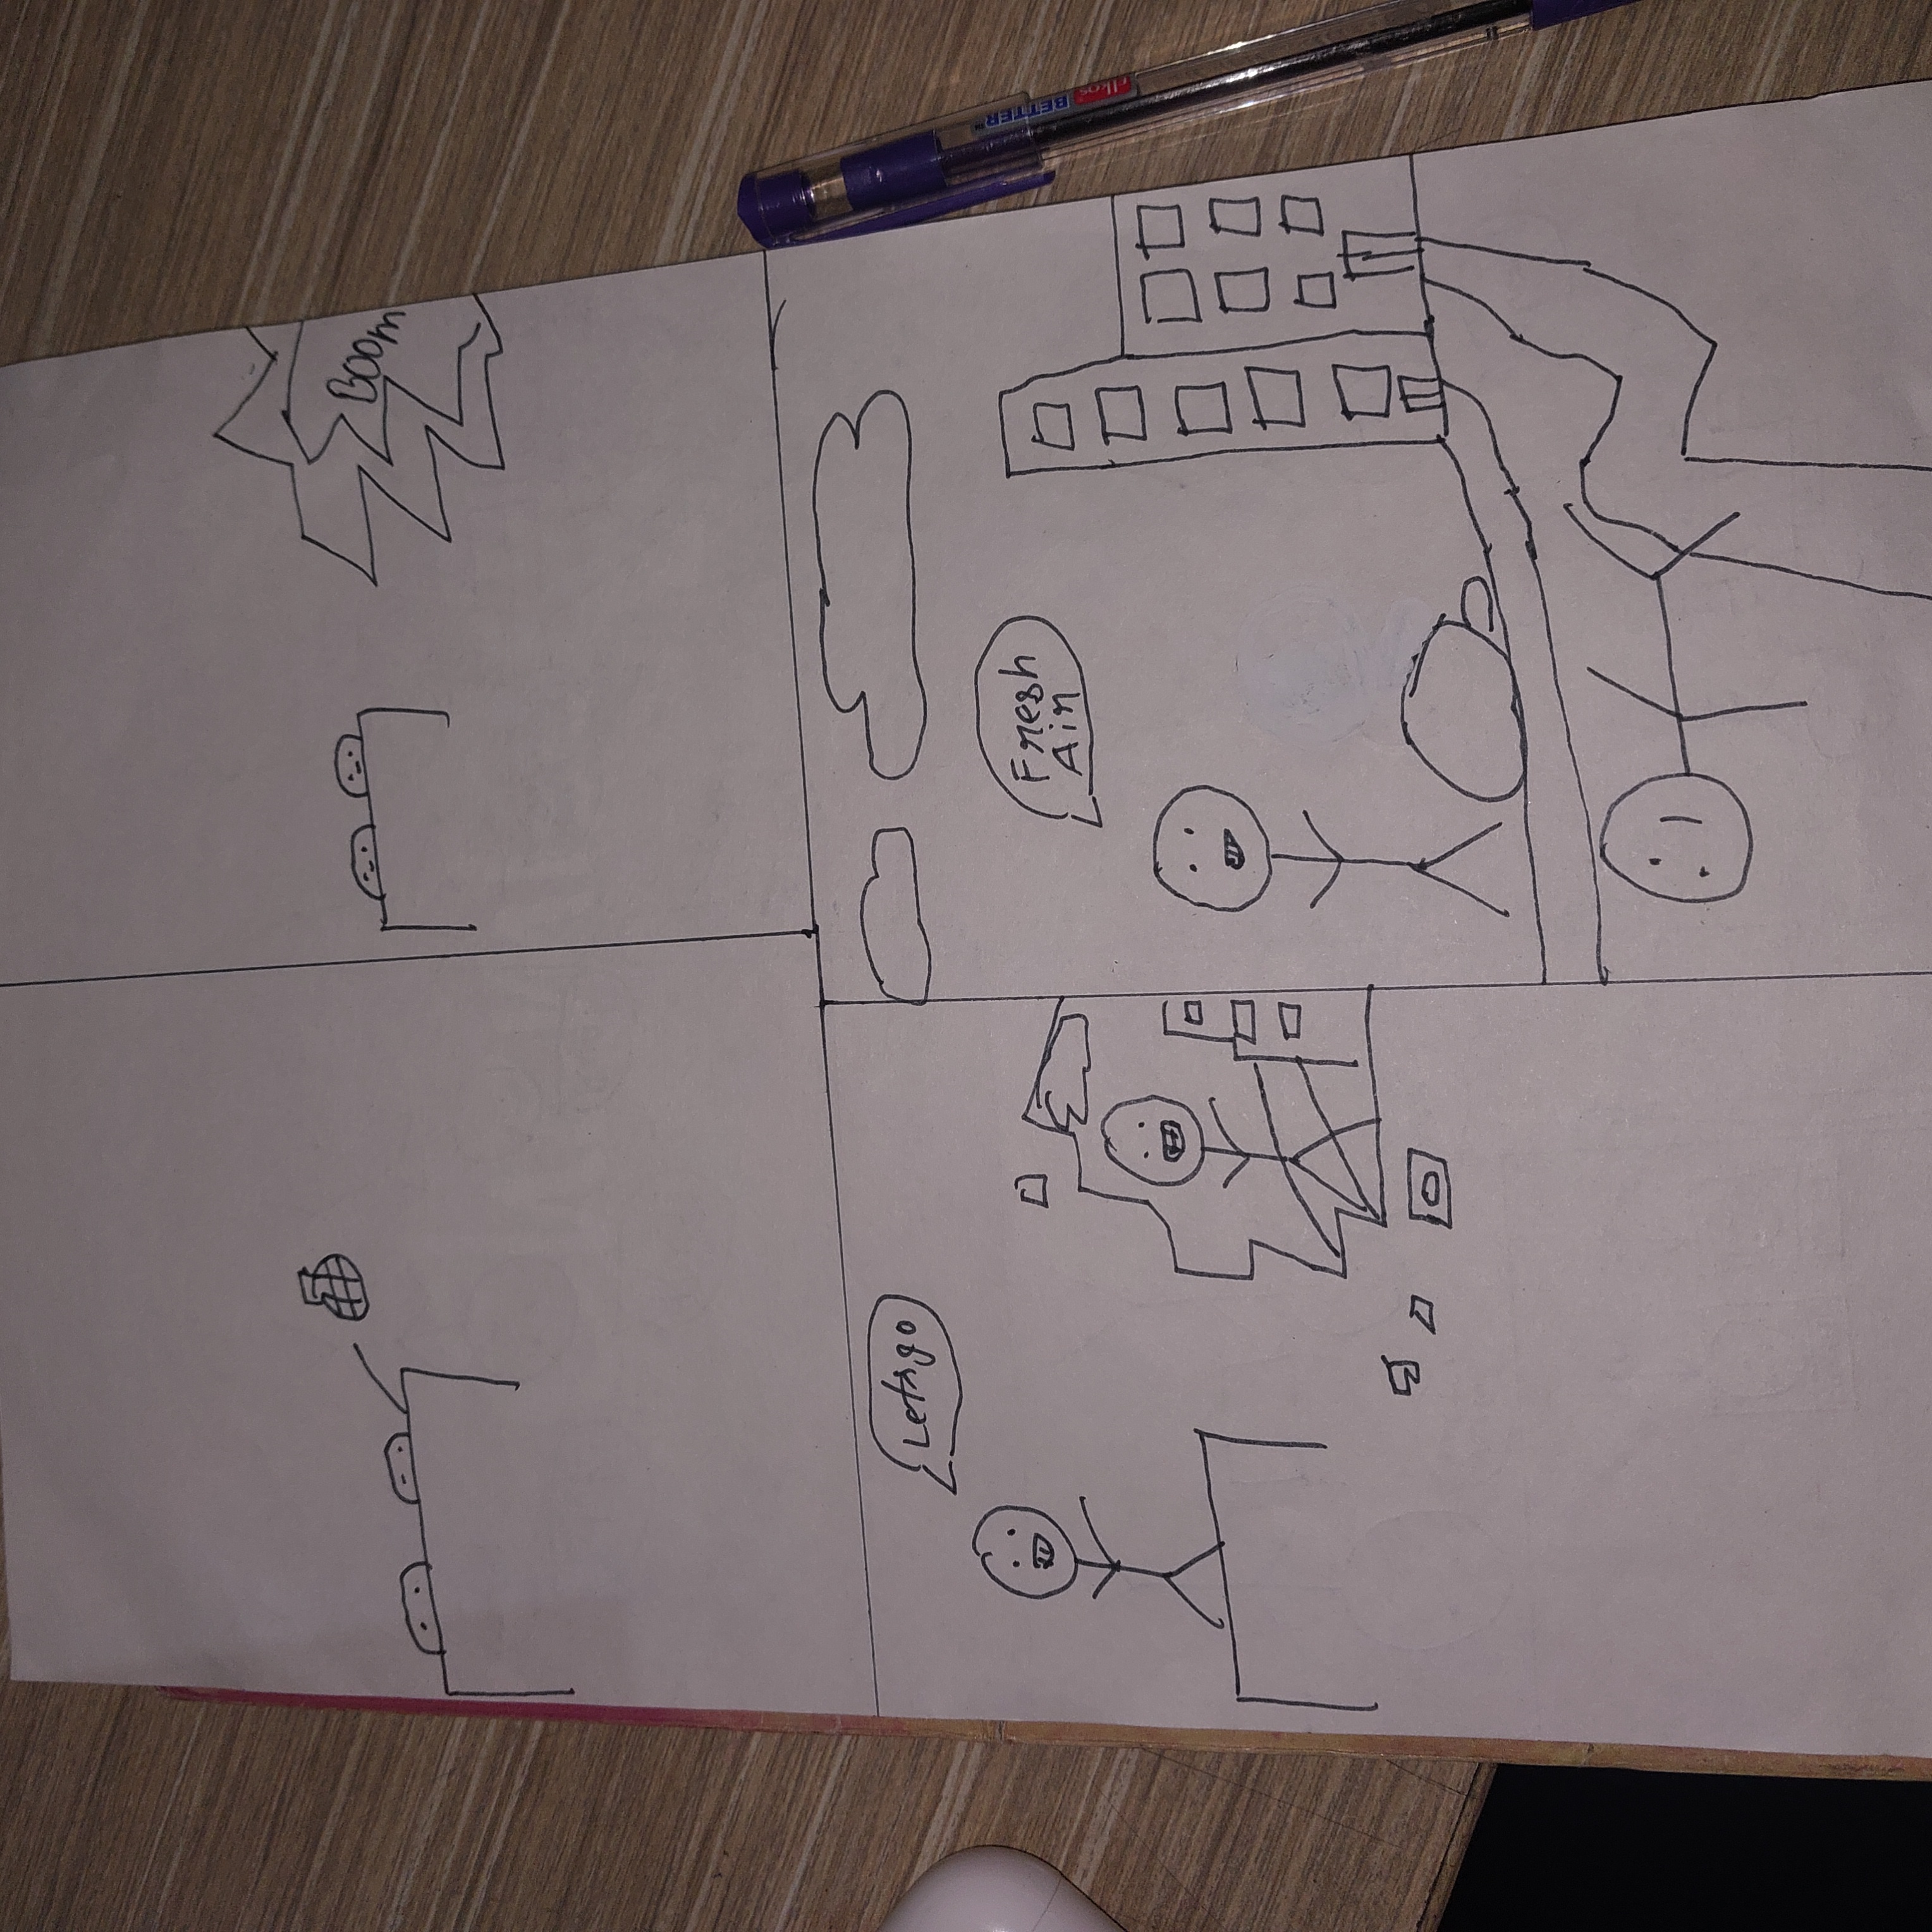 BOOM
Let's go
Fresh
Air
elkos BETTER